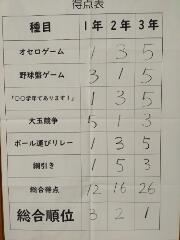 得点表
種目 1年 2年 3年
オセロゲーム 1 3 5
野球盤ゲーム 3 1 5
「○○学年であります!」 1 3 5
大玉競争 5 1 3
ボール運びリレー 1 3 5
綱引き 1 5 3
総合得点 12 16 26
総合順位 3 2 1